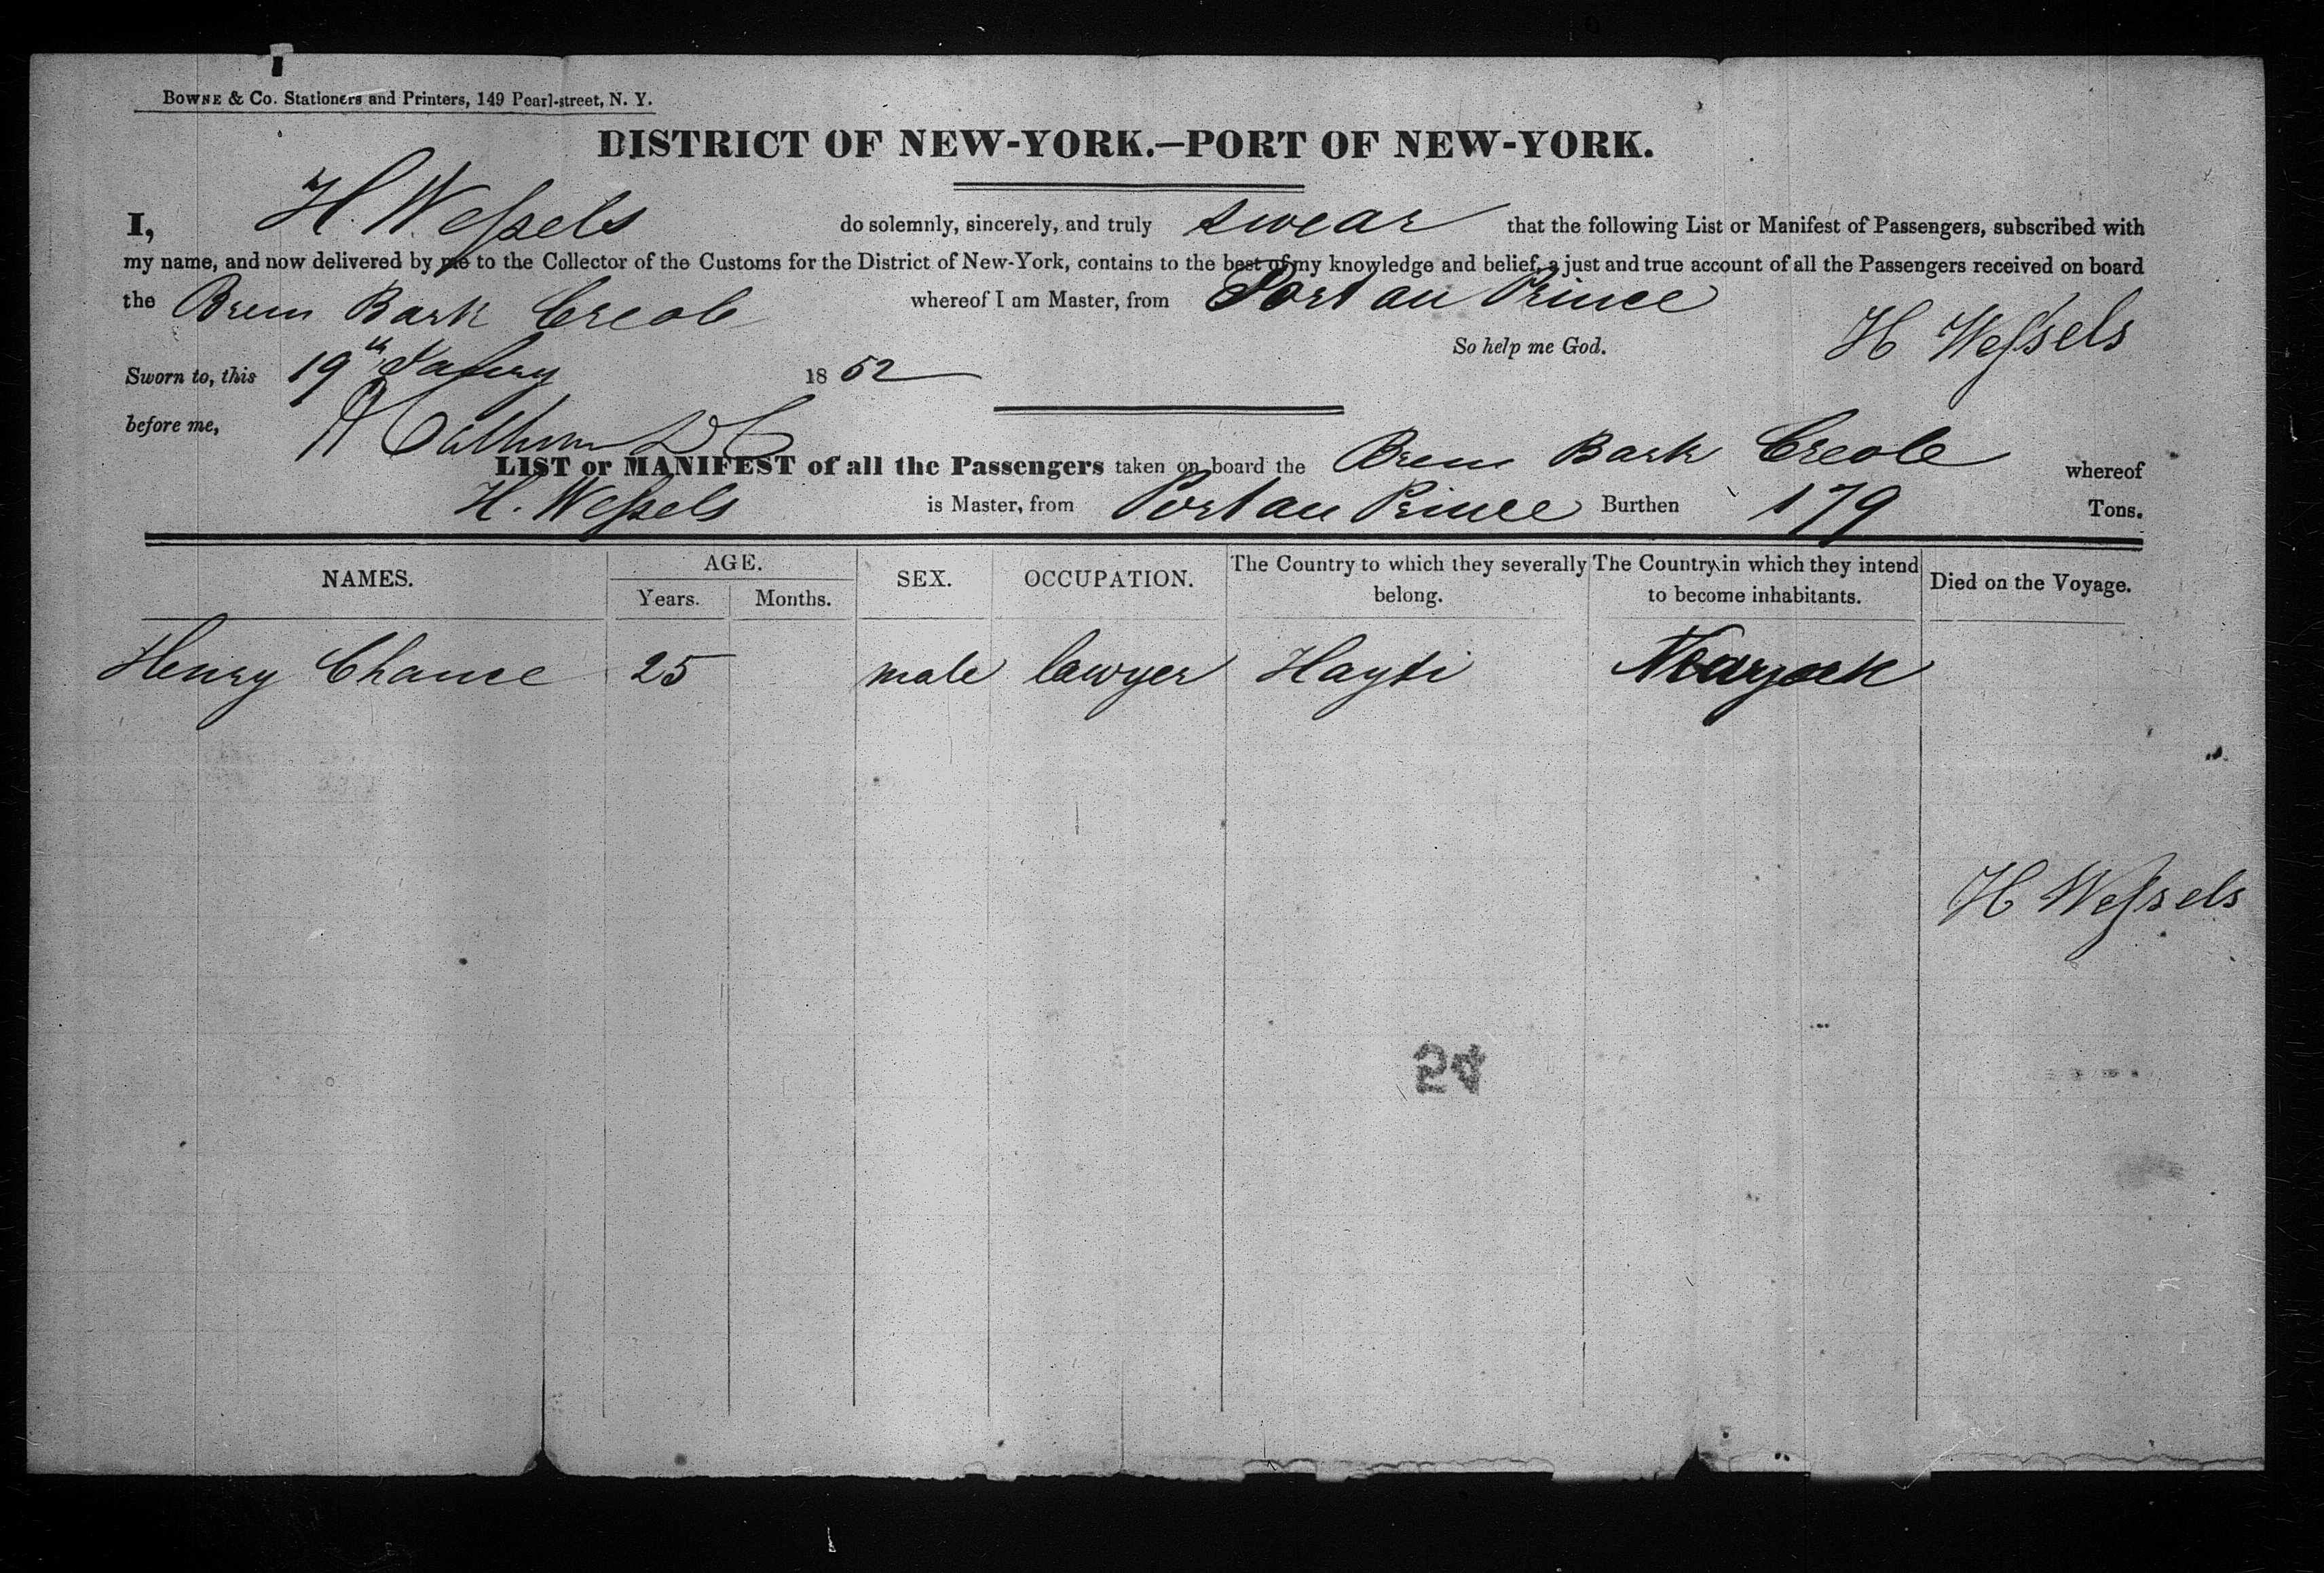 BOWNE & Co. Stationers and Printers, 149 Pearl-street, N. Y.
DISTRICT OF NEW-YORK.—PORT OF NEW-YORK.
I, H. Wessels do solemnly, sincerely, and truly swear that the following List or Manifest of Passengers, subscribed with
my name, and now delivered by me to the Collector of the Customs for the District of New-York, contains to the best of my knowledge and belief, a just and true account of all the Passengers received on board
the Brem Bark Creole whereof I am Master, from Port au Prince
So help me God. H Wessels
Sworn to, this 19th 1852
before me,
LIST or MANIFEST of all the Passengers taken on board the Brem Bark Creole whereof
H. Wessels is Master, from Port au Prince Burthen 179 Tons.
NAMES. AGE. Years. Months. SEX. OCCUPATION. The Country to which they severally belong. The Country in which they intend to become inhabitants. Died on the Voyage.
Henry Chance 25 male lawyer Hayti Newyork
H Wessels